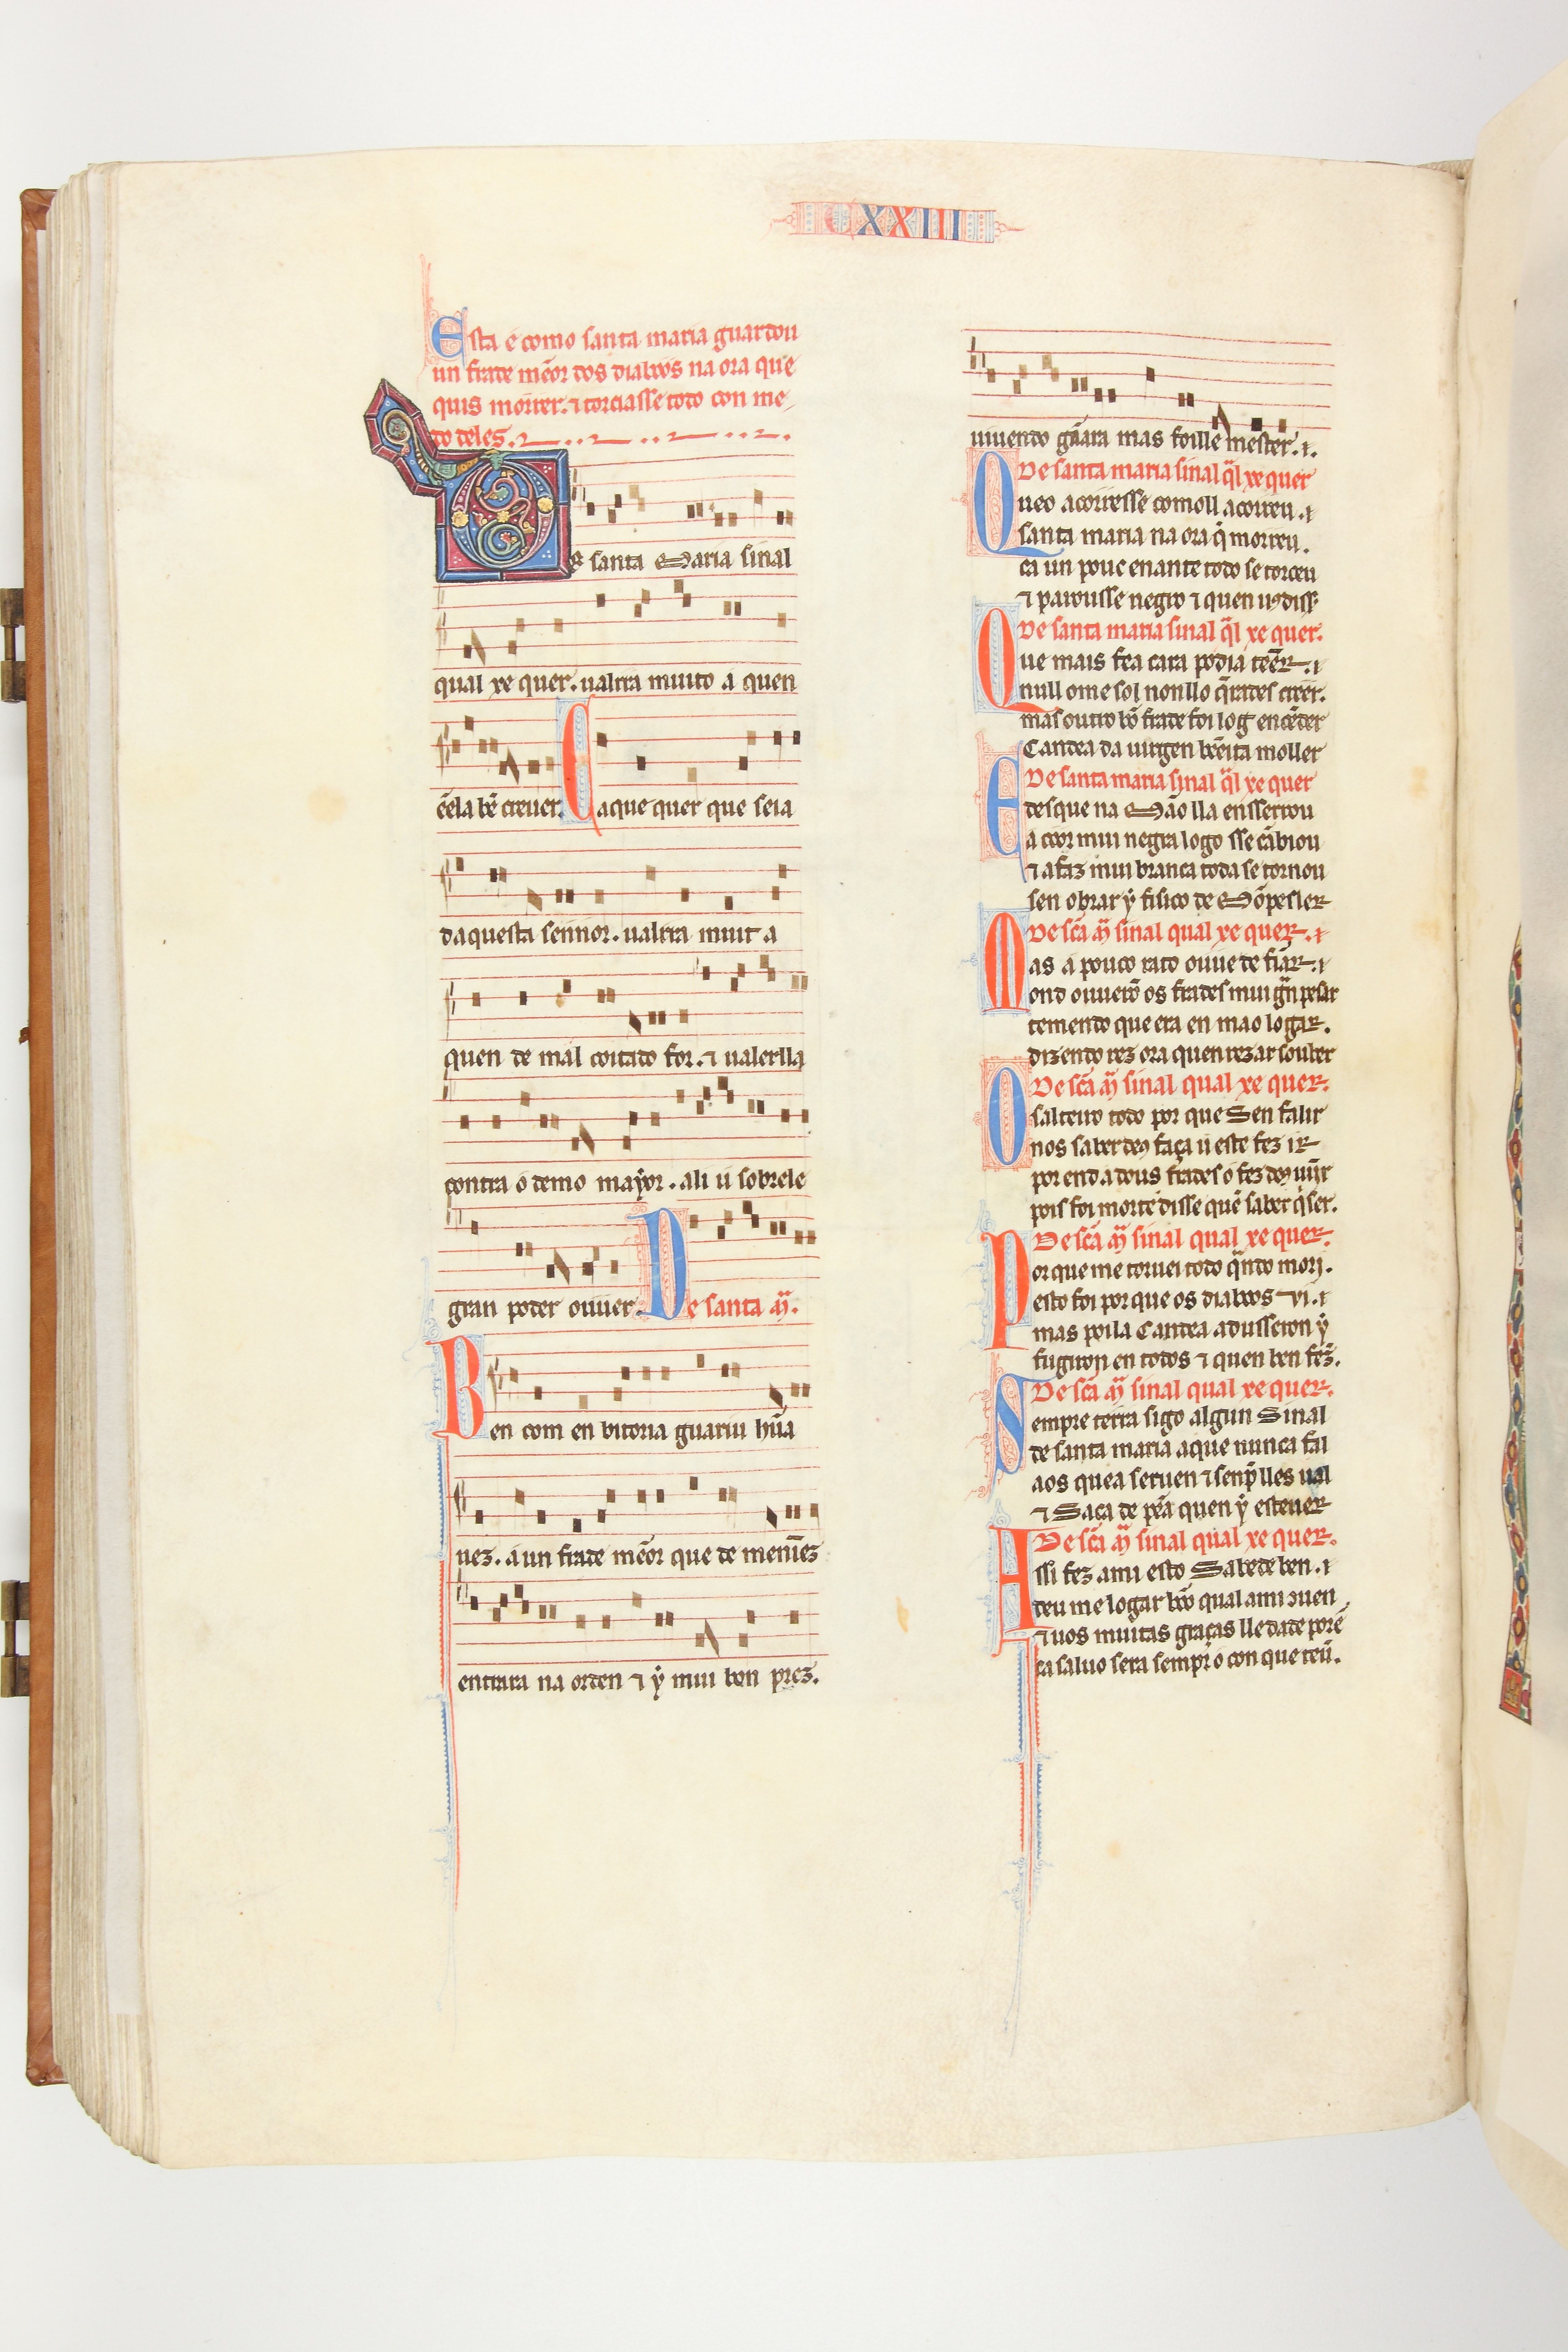 CXXIII
Esta é como santa maria guardou
un frade mẽor dos diabos na ora que
quis morrer. ⁊ torciasse todo con me-
do deles.
De santa Maria sinal
qual xe quer. ualrra muito a quen
ẽela bẽ creuer. Ca que quer que seia
daquesta sennor. ualrra muit a
quen de mal coitado for. ⁊ ualerlla
contra o demo maẏor. ali ú sobrele
gran poder ouuer. De santa mᵃ.
Ben com en bitoria guariu hũa
uez. á un frade mẽor que de menĩez
entrara na orden ⁊ ẏ mui bon prez.
uiuendo gãara mas foille mester. ⁊.
De santa maria sinal q̃l xe quer
Queo acorresse comoll acorreu. ⁊
santa maria na ora q̃ morreu.
ca un pouc enante todo se torceu
⁊ parousse negro ⁊ quen uꝯ diss
De santa maria sinal q̃l xe quer.
Que mais fea cara podia teẽr. ⁊
null ome sol non llo q̃rades creer.
mas outro bõ frade foi log encẽder
Candea da uirgen bẽeita moller
De santa maria sinal q̃l xe quer
E desque na Mão lla ensserrou
a coor mui negra logo sse cãbiou
⁊ a faz mui branca toda se tornou
sen obrar ẏ fisico de Mõpesler
De scã mᵃ sinal qual xe quer. ⁊
Mas a pouco rato ouue de fiar. ⁊
ond ouuerõ os frades mui grã pesar
temendo que era en mao logar.
dizendo rez ora quen rezar souber
De scã mᵃ sinal qual xe quer.
O salteiro todo por que Sen falir
nos saber deꝯ faça ú este fez ir
por end a dous frades o fez deꝯ uĩir
pois foi morte disse quẽ saber q̃ser.
De scã mᵃ sinal qual xe quer.
Por que me toruei todo q̃ndo morj.
esto foi por que os diabos vi. ⁊
mas poila Candea adusseron ẏ
fugiron en todos ⁊ quen ben fez̃.
De scã mᵃ sinal qual xe quer.
Sempre terra sigo algun Sinal
de santa maria aque nunca fal
aos quea seruen ⁊ senp̃ lles ual
⁊ Saca de pẽa quen ẏ esteuer
De scã mᵃ sinal qual xe quer.
Assi fez ami esto Sabede ben. ⁊
deu me logar bõo qual ami conuen
⁊ uos muitas graças lle dade porẽ
ca saluo sera sempr o con que teũ.